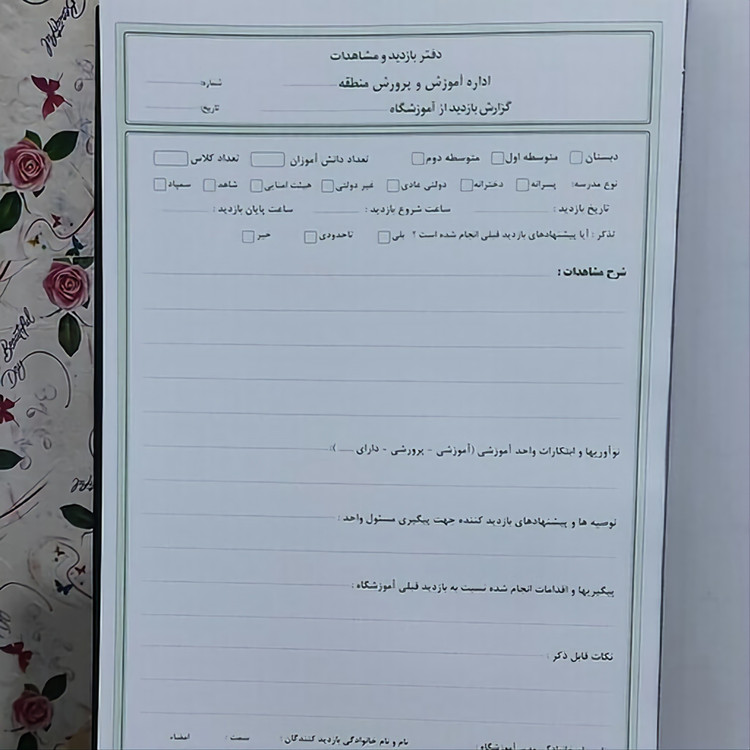 دفتر بازدید و مشاهدات
اداره آموزش و پرورش منطقه
شماره:
گزارش بازدید از آموزشگاه
تاریخ:
دبستان متوسطه اول متوسطه دوم تعداد دانش آموزان تعداد کلاس
نوع مدرسه: پسرانه دخترانه دولتی عادی غیر دولتی هیئت امنایی شاهد سمپاد
تاریخ بازدید : ساعت شروع بازدید : ساعت پایان بازدید :
تذکر : آیا پیشنهادهای بازدید قبلی انجام شده است ؟ بلی تاحدودی خیر
شرح مشاهدات :
نوآوریها و ابتکارات واحد آموزشی (آموزشی - پرورشی - دارای ..... ):
توصیه ها و پیشنهادهای بازدید کننده جهت پیگیری مسئول واحد :
پیگیریها و اقدامات انجام شده نسبت به بازدید قبلی آموزشگاه :
نکات قابل ذکر :
نام و نام خانوادگی بازدید کنندگان : سمت : امضاء
آموزشگاه :
Beautiful
Day